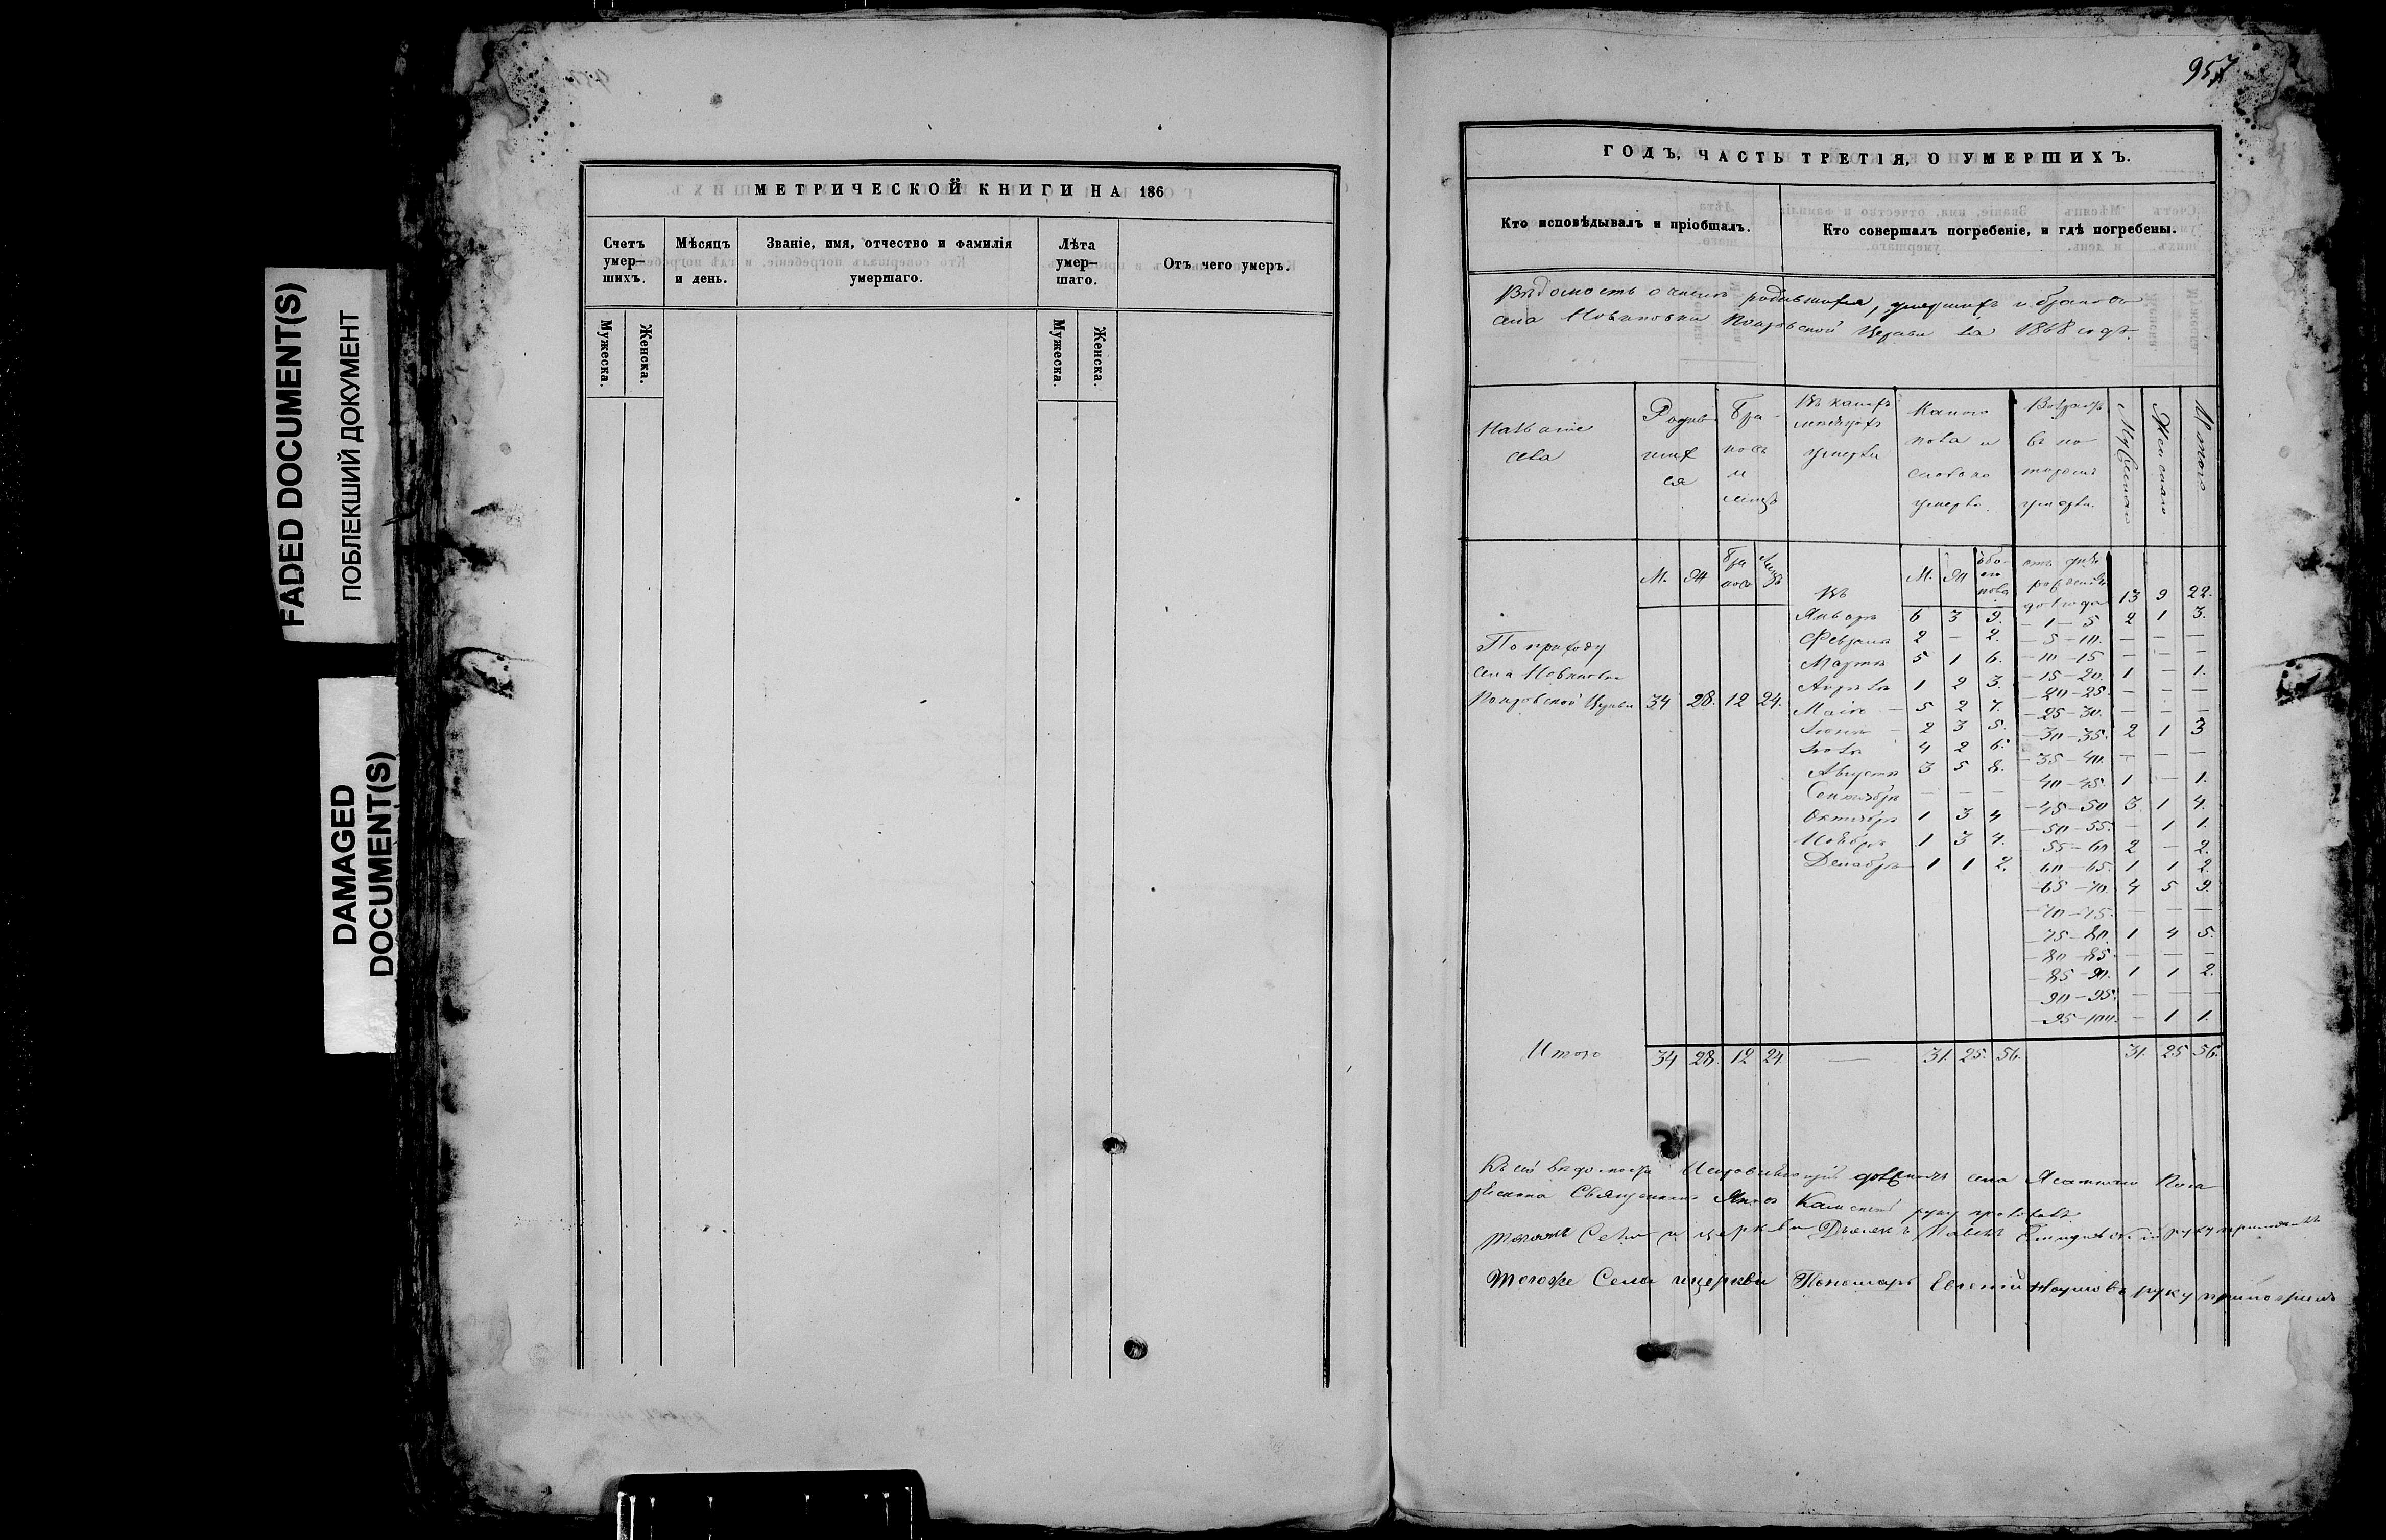 FADED DOCUMENT(S)
ПОБЛЕКШИЙ ДОКУМЕНТ
DAMAGED
DOCUMENT(S)
МЕТРИЧЕСКОЙ КНИГИ НА 186
Счетъ умер–шихъ.
Мужеска. Женска.
Мѣсяцъ и день.
Званіе, имя, отчество и фамилія умершаго.
Лѣта умер–шаго.
Мужеска. Женска.
Отъ чего умеръ.
957
ГОДЪ, ЧАСТЬ ТРЕТІЯ, О УМЕРШИХЪ.
Кто исповѣдывалъ и пріобщалъ.
Кто совершалъ погребеніе, и гдѣ погребены.
Вѣдомость о числѣ родившихся, умершихъ и браковъ
села Покровской Церкви за 1868 годъ.
Названіе
села
Родив
ших
ся
Бра-
ковъ
и
лицъ
Въ какихъ
мѣсяцахъ
умерли
Какого
пола и
сколько
умерло.
Возрастъ
въ ко
торомъ
умерли.
Мужескаго
Женскаго
Итого
М. Ж Бра ковъ Лицъ
Въ
М. Ж обо-его пола
отъ дня
рожденія
до 1 года 13 9 22.
Январѣ 6 3 9. – 1 – 5 2 1 3.
Февралѣ 2 – 2. – 5 – 10. – – –
Мартѣ 5 1 6. – 10 – 15 – – –
Апрѣлѣ 1 2 3. – 15 – 20. 1 – 1.
– 20 – 25. – – –
Маіѣ – 5 2 7. – 25 – 30. – – –
Іюнѣ – 2 3 5. – 30 – 35. 2 1 3
Іюлѣ 4 2 6. – 35 – 40. – – –
Августѣ 3 5 8. – 40 – 45. 1 – 1.
Сентябрѣ – – – – 45 – 50 3. 1 4.
Октябрѣ 1 3 4 – 50 – 55. – 1 1.
Ноябрѣ 1 3 4. – 55 – 60 2 – 2.
Декабрѣ 1 1 2. 60 – 65. 1 1 2.
– 65 – 70. 4 5 9.
– 70 – 75. – – –
– 75 – 80. 1 4 5.
– 80 – 85. – – –
– 85 – 90. 1 1 2.
– 90 – 95. – – –
– 95 – 100. – 1 1.
По приходу
села
Покровской Церкви 34 28. 12 24.
Итого 34 28. 12 24 — 31. 25. 56. 31. 25 56.
Къ сей вѣдомости села
Священникъ руку приложилъ.
Села и церкви Дьячекъ Павелъ руку приложилъ
Тогоже Села и церкви Пономарь Наумовъ руку приложилъ